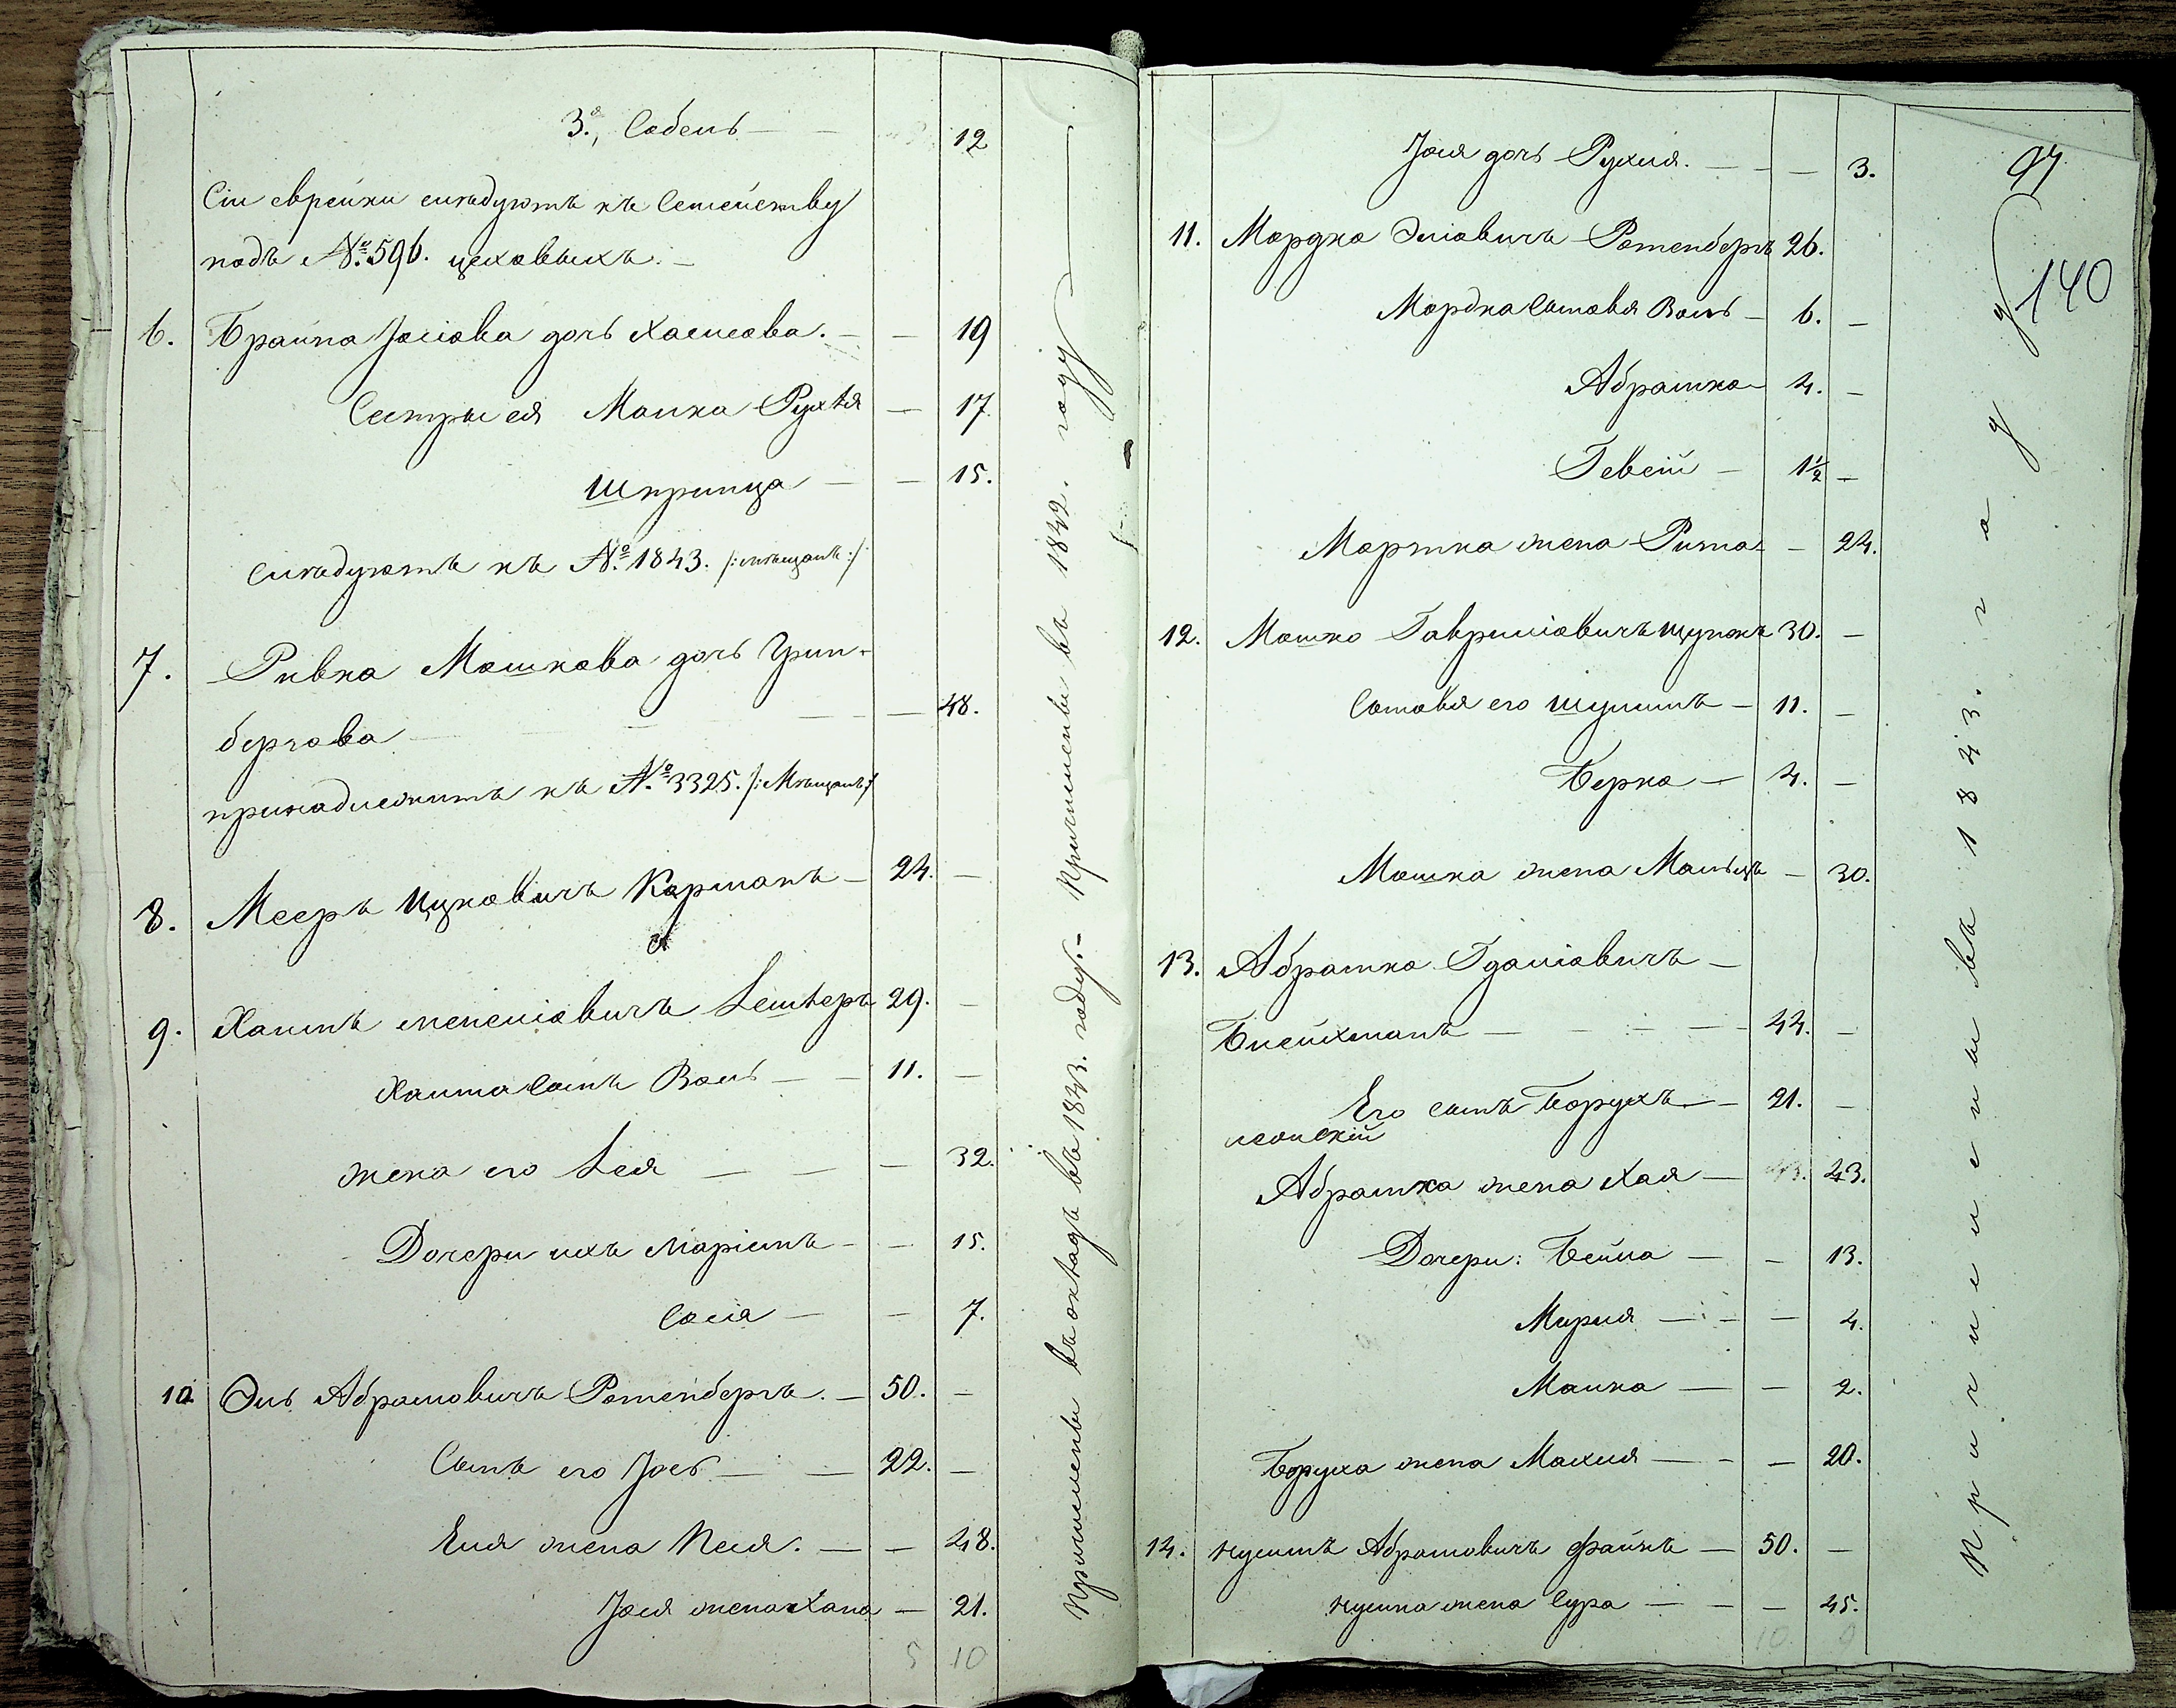 3я, Собель — 12
Сіи еврейки слѣдуютъ къ Семейству
подъ №: 596. цеховыхъ. —
6. Брайна Іосіова дочь Хаимова. — — 19
Сестры ея Малка Рухля — 17.
Шпринца — — 15.
Слѣдуютъ къ №: 1843. /:мѣщанъ:/
7. Ривка Мошкова дочь Грин-
бергова — — 48.
принадлежитъ къ №: 3325. /:Мѣщанъ:/
8. Мееръ Ицковичъ Карманъ — 24. —
9. Хаимъ Менделіовичъ 29. —
Хаима СынъВоль — — 11. —
жена его Лея — — — 32.
Дочери ихъ Маріимъ — — 15.
Сося — — 7.
10 Эль Абрамовичъ Ротенбергъ. — 50. —
Сынъ его Іось — — 22. —
Еля жена Песя. — — 48.
Іося жена Хана — 21.
5 10
Причислены въ окладъ въ 1843. году. — Причислены въ 1842. году
Іося дочь Рухля. — — — 3.
97
140
11. Мордко Эліовичъ Ротенбергъ 26.
Мордка Сыновья Воль — 6. —
Абрамко 4. —
Гевсій — 1½ —
Мортка жена Рита — — 24.
12. Мошко Гавриліовичъ Щупакъ 30. —
Сыновья его Шулимъ — 11. —
Берко — 4. —
Мошка жена — 30.
13. Абрамко Гдаліовичъ —
Блейхманъ — — — — 44. —
Его сынъ Борухъ — 21. —
Абрамка жена Хая — 43.
Дочери: Бейла — — 13.
Мирля — — — 4.
Малка — — 2.
Боруха жена Махля — — — 20.
14. Нусимъ Абрамовичъ Файнъ — 50. —
Нусина жена Сура — — — 45.
10 9
Причислены въ 1843. году